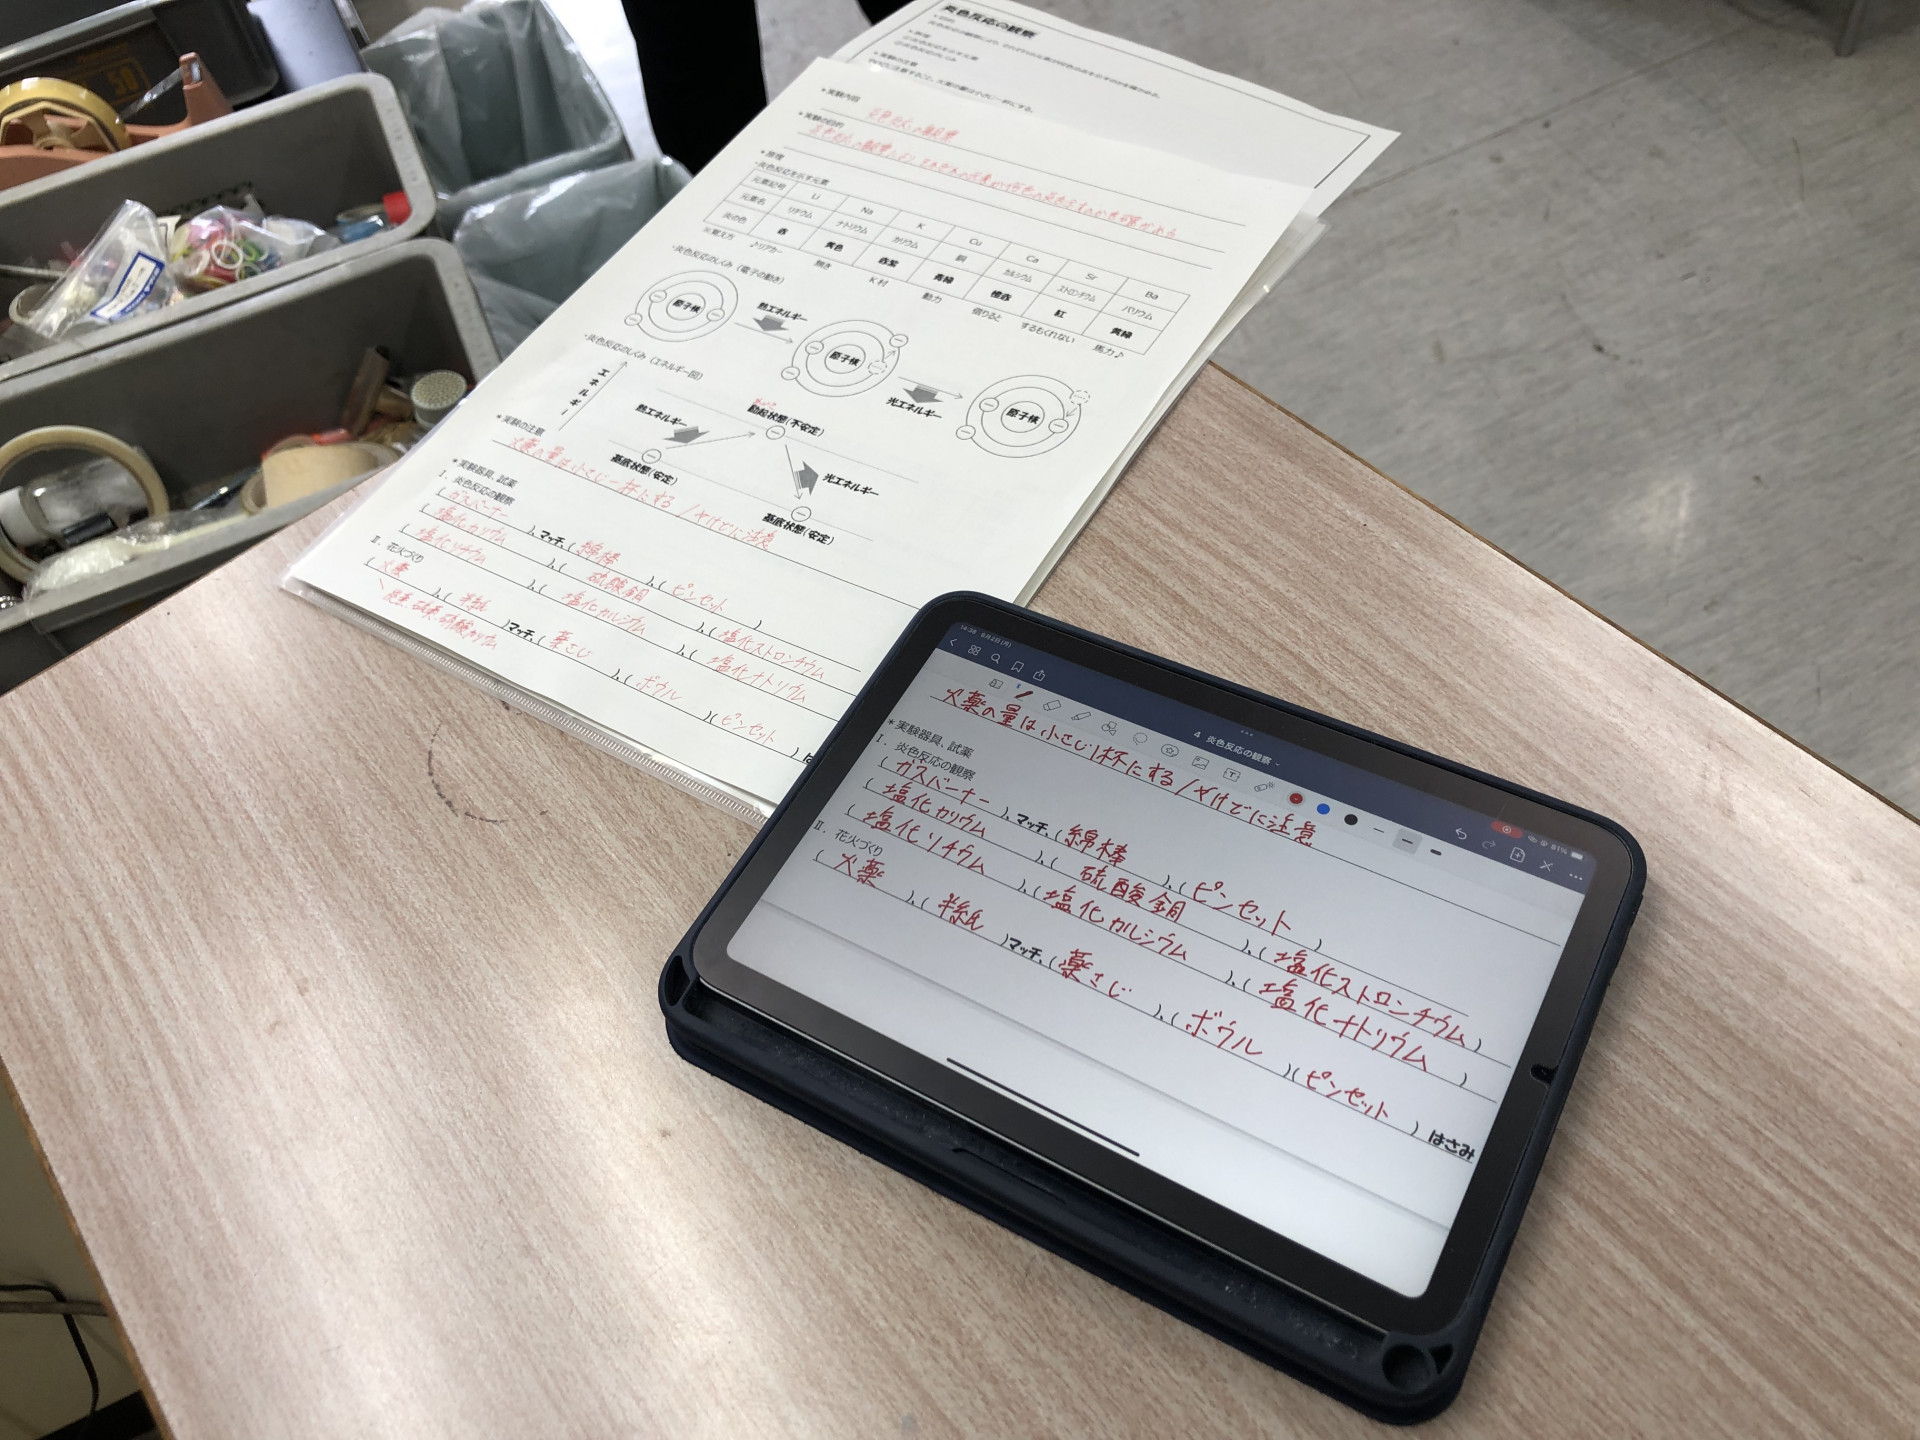 炎色反応の観察
＊実験の注意
＊実験内容
炎色反応の観察
＊実験の目的
＊原理
・炎色反応を示す元素
元素記号 Li Na K Cu Ca Sr Ba
元素名 リチウム ナトリウム カリウム 銅 カルシウム ストロンチウム バリウム
炎の色 赤 黄色 赤紫 青緑 橙赤 紅 黄緑
※覚え方 ♪リアカー 無き K村 動力 借りると するもくれない 馬力♪
・炎色反応のしくみ（電子の動き）
原子核 熱エネルギー 原子核 光エネルギー 原子核
・炎色反応のしくみ（エネルギー図）
エネルギー
熱エネルギー 励起状態(不安定)
基底状態(安定) 光エネルギー
基底状態(安定)
＊実験の注意
火薬の量は小さじ一杯にする / やけどに注意
＊実験器具、試薬
Ⅰ．炎色反応の観察
( ガスバーナー )、マッチ、( 綿棒 )、( ピンセット )
( 塩化カリウム )、( 硫酸銅 )、( 塩化ストロンチウム
( 塩化リチウム )、( 塩化カルシウム )、( 塩化ナトリウム
Ⅱ．花火づくり
( 火薬 )、( 半紙 )マッチ、( 薬さじ )、( ボウル )( ピンセット ) は
硫黄、硝酸カリウム
14:38 6月2日(月)
81%
4 炎色反応の観察
火薬の量は小さじ1杯にする / やけどに注意
＊実験器具、試薬
Ⅰ．炎色反応の観察
( ガスバーナー )、マッチ、( 綿棒 )、( ピンセット )
( 塩化カリウム )、( 硫酸銅 )、( 塩化ストロンチウム )
( 塩化リチウム )、( 塩化カルシウム )、( 塩化ナトリウム )
Ⅱ．花火づくり
( 火薬 )、( 半紙 )マッチ、( 薬さじ )、( ボウル )( ピンセット ) はさみ